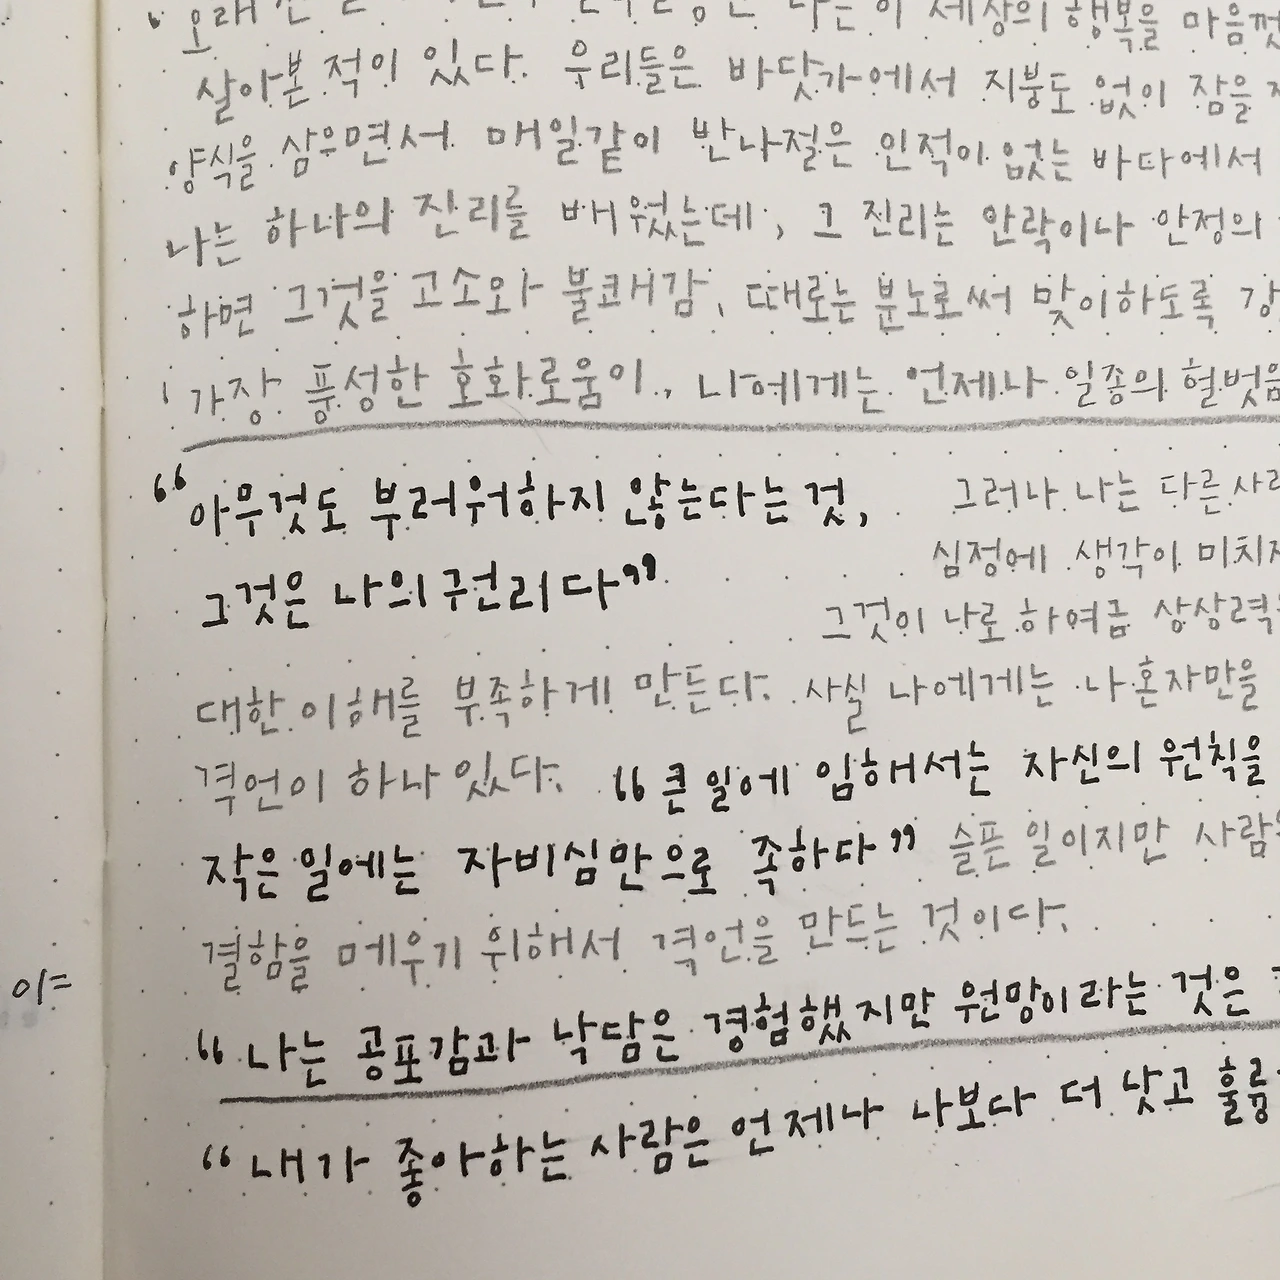 살아본 적이 있다. 우리들은 바닷가에서 지붕도 없이 잠을
양식을 삼으면서 매일같이 반나절은 인적이 없는 바다에서
나는 하나의 진리를 배웠는데, 그 진리는 안락이나 안정의
하면 그것을 고소와 불쾌감, 때로는 분노로써 맞이하도록
가장 풍성한 호화로움이, 나에게는 언제나 일종의 헐벗음
“아무것도 부러워하지 않는다는 것, 그러나 나는 다른
그것은 나의 권리다” 심정에 생각이 미치지
그것이 나로 하여금 상상력
대한 이해를 부족하게 만든다. 사실 나에게는 나 혼자만을
격언이 하나 있다. “큰 일에 임해서는 자신의 원칙을
작은 일에는 자비심만으로 족하다” 슬픈 일이지만
결함을 메우기 위해서 격언을 만드는 것이다.
“나는 공포감과 낙담은 경험했지만 원망이라는 것은
“내가 좋아하는 사람은 언제나 나보다 더 낫고